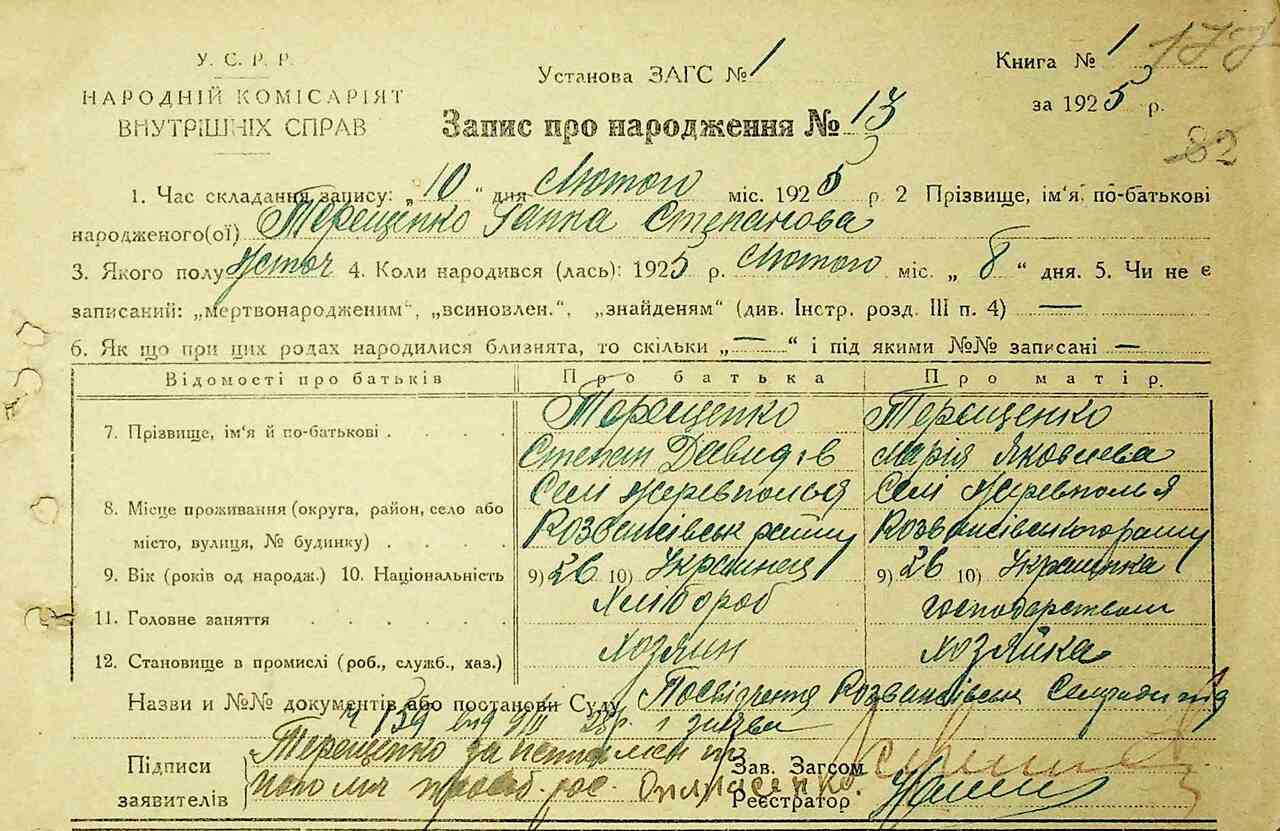 У. С. Р. Р.
НАРОДНІЙ КОМІСАРІЯТ
ВНУТРІШНІХ СПРАВ
Установа ЗАГС № 1
Книга № 1
за 1925 р.
Запис про народження № 13
82
1. Час складання запису: „10“ дня Лютого міс. 1925 р. 2 Прізвище, ім'я по-батькові
народженого(ої) Терещенко Ганна Степанова
3. Якого полу 4. Коли народився (лась): 1925 р. Лютого міс. „ 8 “ дня. 5. Чи не є
записаний: „мертвонародженим“, „всиновлен.“, „знайденям“ (див. Інстр. розд. III п. 4) —
6. Як що при цих родах народилися близнята, то скільки „ — “ і під якими №№ записані —
Відомості про батьків Про батька Про матір.
7. Прізвище, ім'я й по-батькові . . . . Терещенко Терещенко
Степан Давидів Марія Яковлева
8. Місце проживання (округа, район, село або Селі Селі
місто, вулиця, № будинку) . . . .
9. Вік (років од народж.) 10. Національність 9) 26 10) Украинец 9) 26 10) Украинка
11. Головне заняття . . . . . . Хлібороб господарством
12. Становище в промислі (роб., служб., хаз.) Хозяин Хозяйка
Назви и №№ документів або постанови Суду Посвідчення
№ 139
Підписи
заявителів
Терещенко
Зав. Загсом
Реєстратор